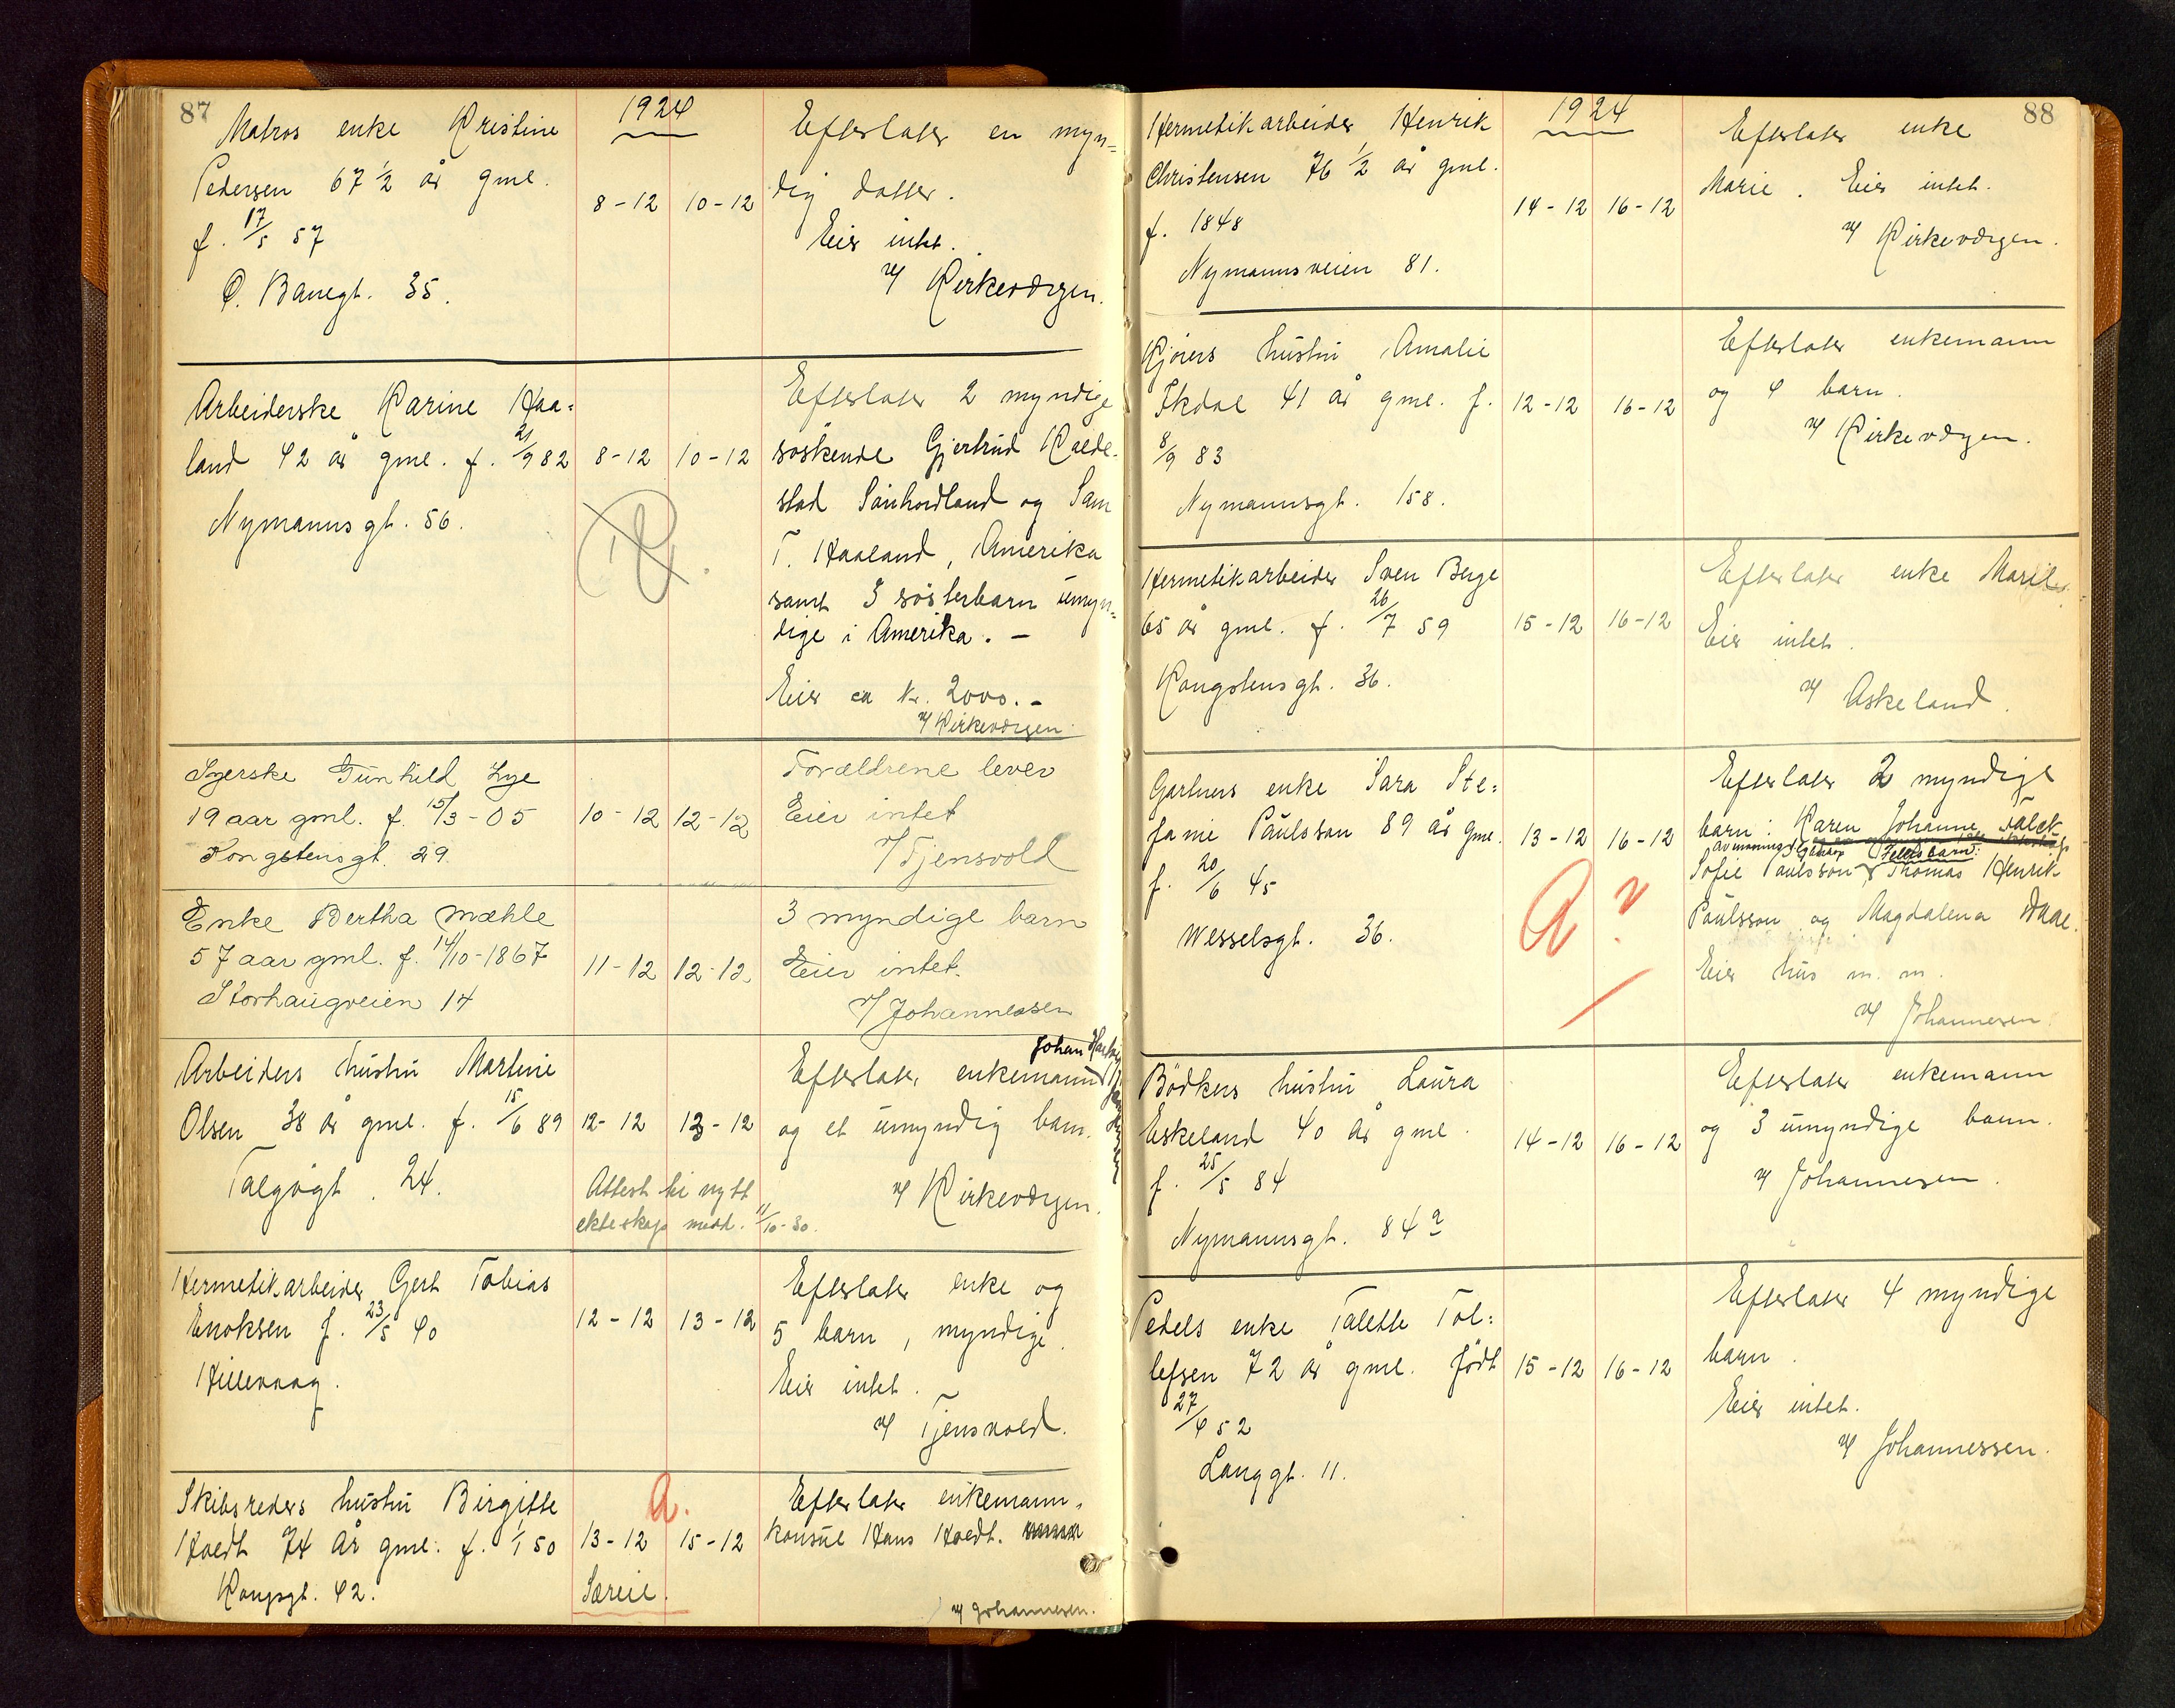 87
1924
Matros enke Kristine
Pedersen 67 ½ år gml.
f. 17/5 57
Ø. Banegt. 35.
8-12 10-12
Efterlater en myn=
dig datter.
Eier intet.
v/ Kirkeværgen.
Arbeiderske Karine Haa=
land 42 år gml. f. 21/9 82
Nymannsgt. 56.
8-12 10-12
Efterlater 2 myndige
søskende Gjertrud
stad Sünhordland og Sam
T. Haaland, Amerika
samt 3 søsterbarn ümyn=
dige i Amerika. -
Eier ca kr. 2000.-
v/ Kirkeværgen.
Syerske Günhild Lye
19 aar gml. f. 15/3-05
Kongstensgt. 29.
10-12 12-12
Forældrene lever
Eier intet
v/ Tjensvold
Enke Bertha Mæhle
57 aar gml. f. 14/10-1867
Storhaügveien 14
11-12 12-12
3 myndige barn
Eier intet.
v/ Johannessen
Arbeiders hüstrü Martine
Olsen 38 år gml. f. 15/6 89
Talgøgt. 24.
12-12 13-12
Attest til nytt
ekteskap medd. 11/10-30.
Johan
Efterlater enkemann
og et ümyndig barn.
v/ Kirkeværgen.
Hermetikarbeider Gert Tobias
Enoksen f. 23/5 40
Hillevaag.
12-12 13-12
Efterlater enke og
5 barn, myndige.
Eier intet.
v/ Tjensvold.
Skibsreders hüstrü Birgitte
Hoedt 74 år gml. f. 1/1 50
Kongsgt. 42.
A.
13-12 15-12
Særeie.
Efterlater enkemann,
konsül Hans Hoedt.
v/ Johannesen.
88
1924
Hermetikarbeider Henrik
Christensen 76 ½ år gml.
f. 1848
Nymannsveien 81.
14-12 16-12
Efterlater enke
Marie. Eier intet.
v/ Kirkeværgen.
Kjørers hüstrü Amalie
Ikdal 41 år gml. f.
8/9 83
Nymannsgt. 158.
12-12 16-12
Efterlater enkemann
og 4 barn.
v/ Kirkeværgen.
Hermetikarbeider Sven Berge
65 år gml. f. 26/7 59
Kongstensgt. 36.
15-12 16-12
Efterlater enke
Eier intet.
v/ Askeland.
Gartners enke Sara Ste=
fanie Paülsson 89 år gml.
f. 20/6 45
Wesselsgt. 36.
13-12 16-12
A ?
Efterlater 2 myndige
barn: Karen Johanne Falck
Fellesbarn:
Sofie Paülsson, Thomas Henrik
Paülsson og Magdalena Daae.
Eier hüs m. m.
v/ Johannesen
Bødkers hüstrü Laüra
Eskeland 40 år gml.
f. 25/5 84
Nymannsgt. 84 a
14-12 16-12
Efterlater enkemann
og 3 ümyndige barn.
v/ Johannesen.
Pedels enke Talette Tol=
lefsen 72 år gml. født
27/4 52
Langgt. 11.
15-12 16-12
Efterlater 4 myndige
barn.
Eier intet.
v/ Johannessen.